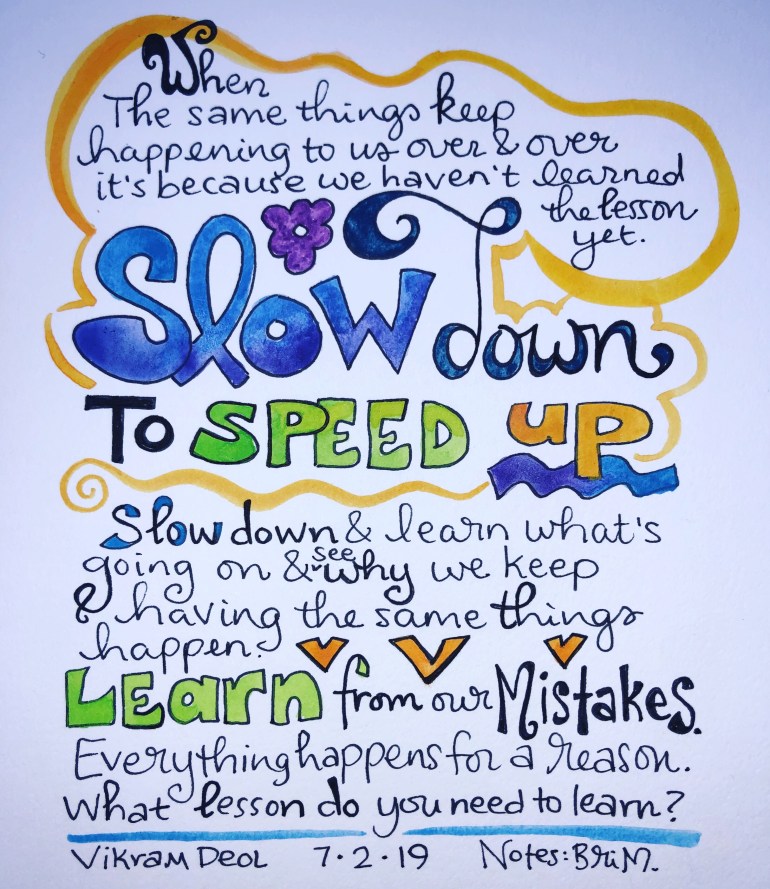 When
The same things keep
happening to us over & over
it's because we haven't learned
the lesson
yet.
Slow down
To SPEED up
Slow down & learn what's
going on & see why we keep
& having the same things
happen.
LEarn from our Mistakes.
Everything happens for a reason.
What lesson do you need to learn?
Vikram Deol 7.2.19 Notes: BriM.